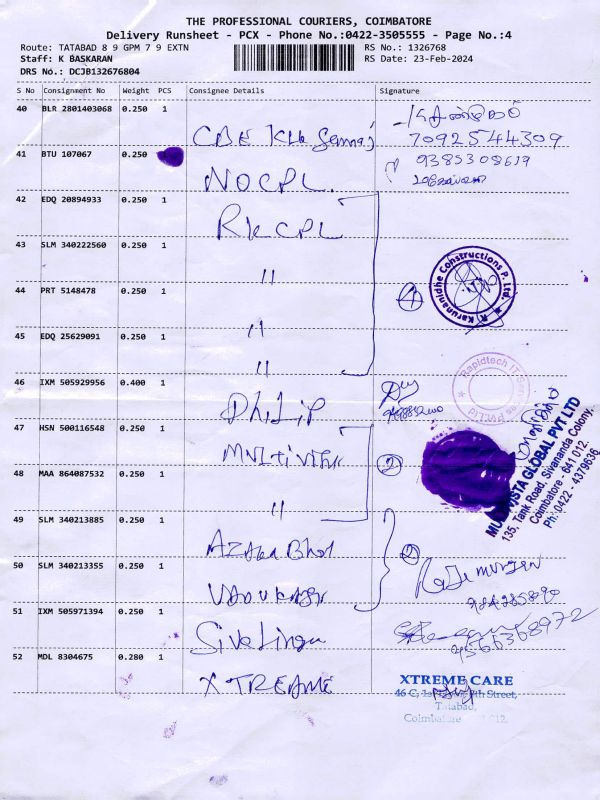 THE PROFESSIONAL COURIERS, COIMBATORE
Delivery Runsheet - PCX - Phone No.:0422-3505555 - Page No.:4
Route: TATABAD 8 9 GPM 7 9 EXTN
RS No.: 1326768
Staff: K BASKARAN
RS Date: 23-Feb-2024
DRS No.: DCJB132676804
S No Consignment No Weight PCS Consignee Details Signature
40 BLR 2801403068 0.250 1
7092544309
41 BTU 107067 0.250
9385308619
NOCPL.
42 EDQ 20894933 0.250 1
RKCPL
43 SLM 340222560 0.250 1
"
R. Karunanidhe Constructions P. Ltd.
44 PRT 5148478 0.250 1
4
"
45 EDQ 25629091 0.250 1
"
Rapidtech IT Services Pvt.Ltd
46 IXM 505929956 0.400 1
Philip
47 HSN 500116548 0.250 1
2
MULTIVISTA GLOBAL PVT LTD
135, Tank Road, Sivananda Colony,
Coimbatore - 641 012.
Ph:0422 - 4379636
48 MAA 864087532 0.250 1
"
49 SLM 340213885 0.250 1
2
50 SLM 340213355 0.250 1
51 IXM 505971394 0.250 1
9566368972
Sivalinga
52 MDL 8304675 0.280 1
XTREAME
XTREME CARE
46 C, Street,
Tatabad,
Coimbatore 012.